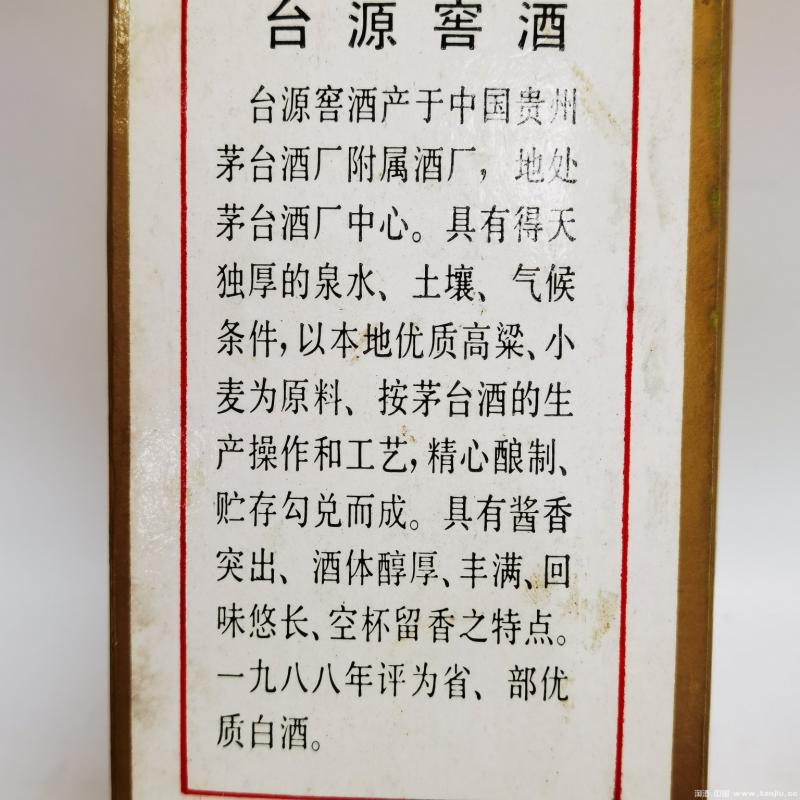 台源窖酒
台源窖酒产于中国贵州
茅台酒厂附属酒厂，地处
茅台酒厂中心。具有得天
独厚的泉水、土壤、气候
条件，以本地优质高粱、小
麦为原料、按茅台酒的生
产操作和工艺，精心酿制、
贮存勾兑而成。具有酱香
突出、酒体醇厚、丰满、回
味悠长、空杯留香之特点。
一九八八年评为省、部优
质白酒。